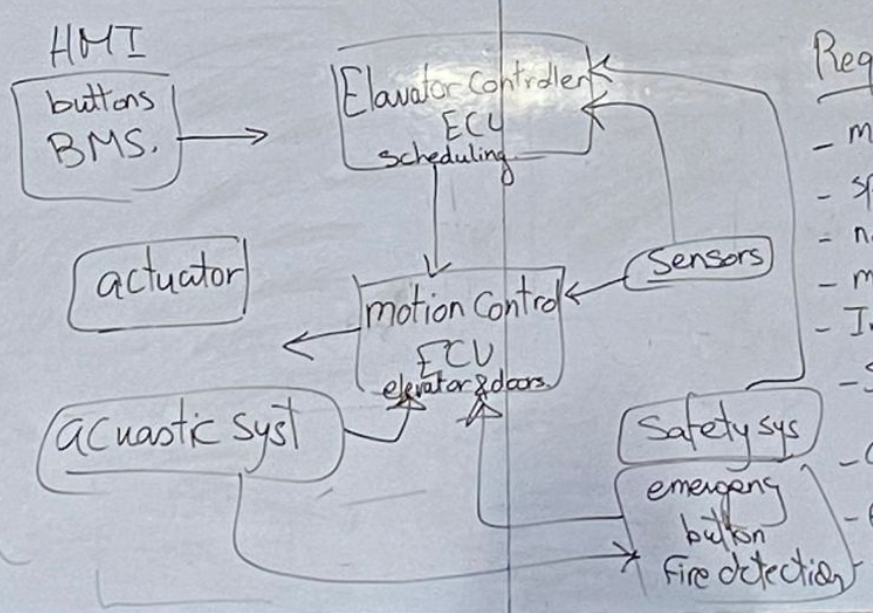 HMI
buttons
BMS.
Elavator Controller
ECU
scheduling
actuator
Sensors
motion Control
ECU
elevator & doors.
acuastic syst
Safety sys
emergeng
button
fire detection
Req
- m
- sp
- n
- m
- I
- S